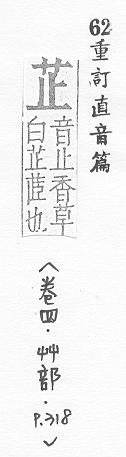 62重訂直音篇
芷
音止香草
白芷茝也
〈卷四・艸部・P.318〉